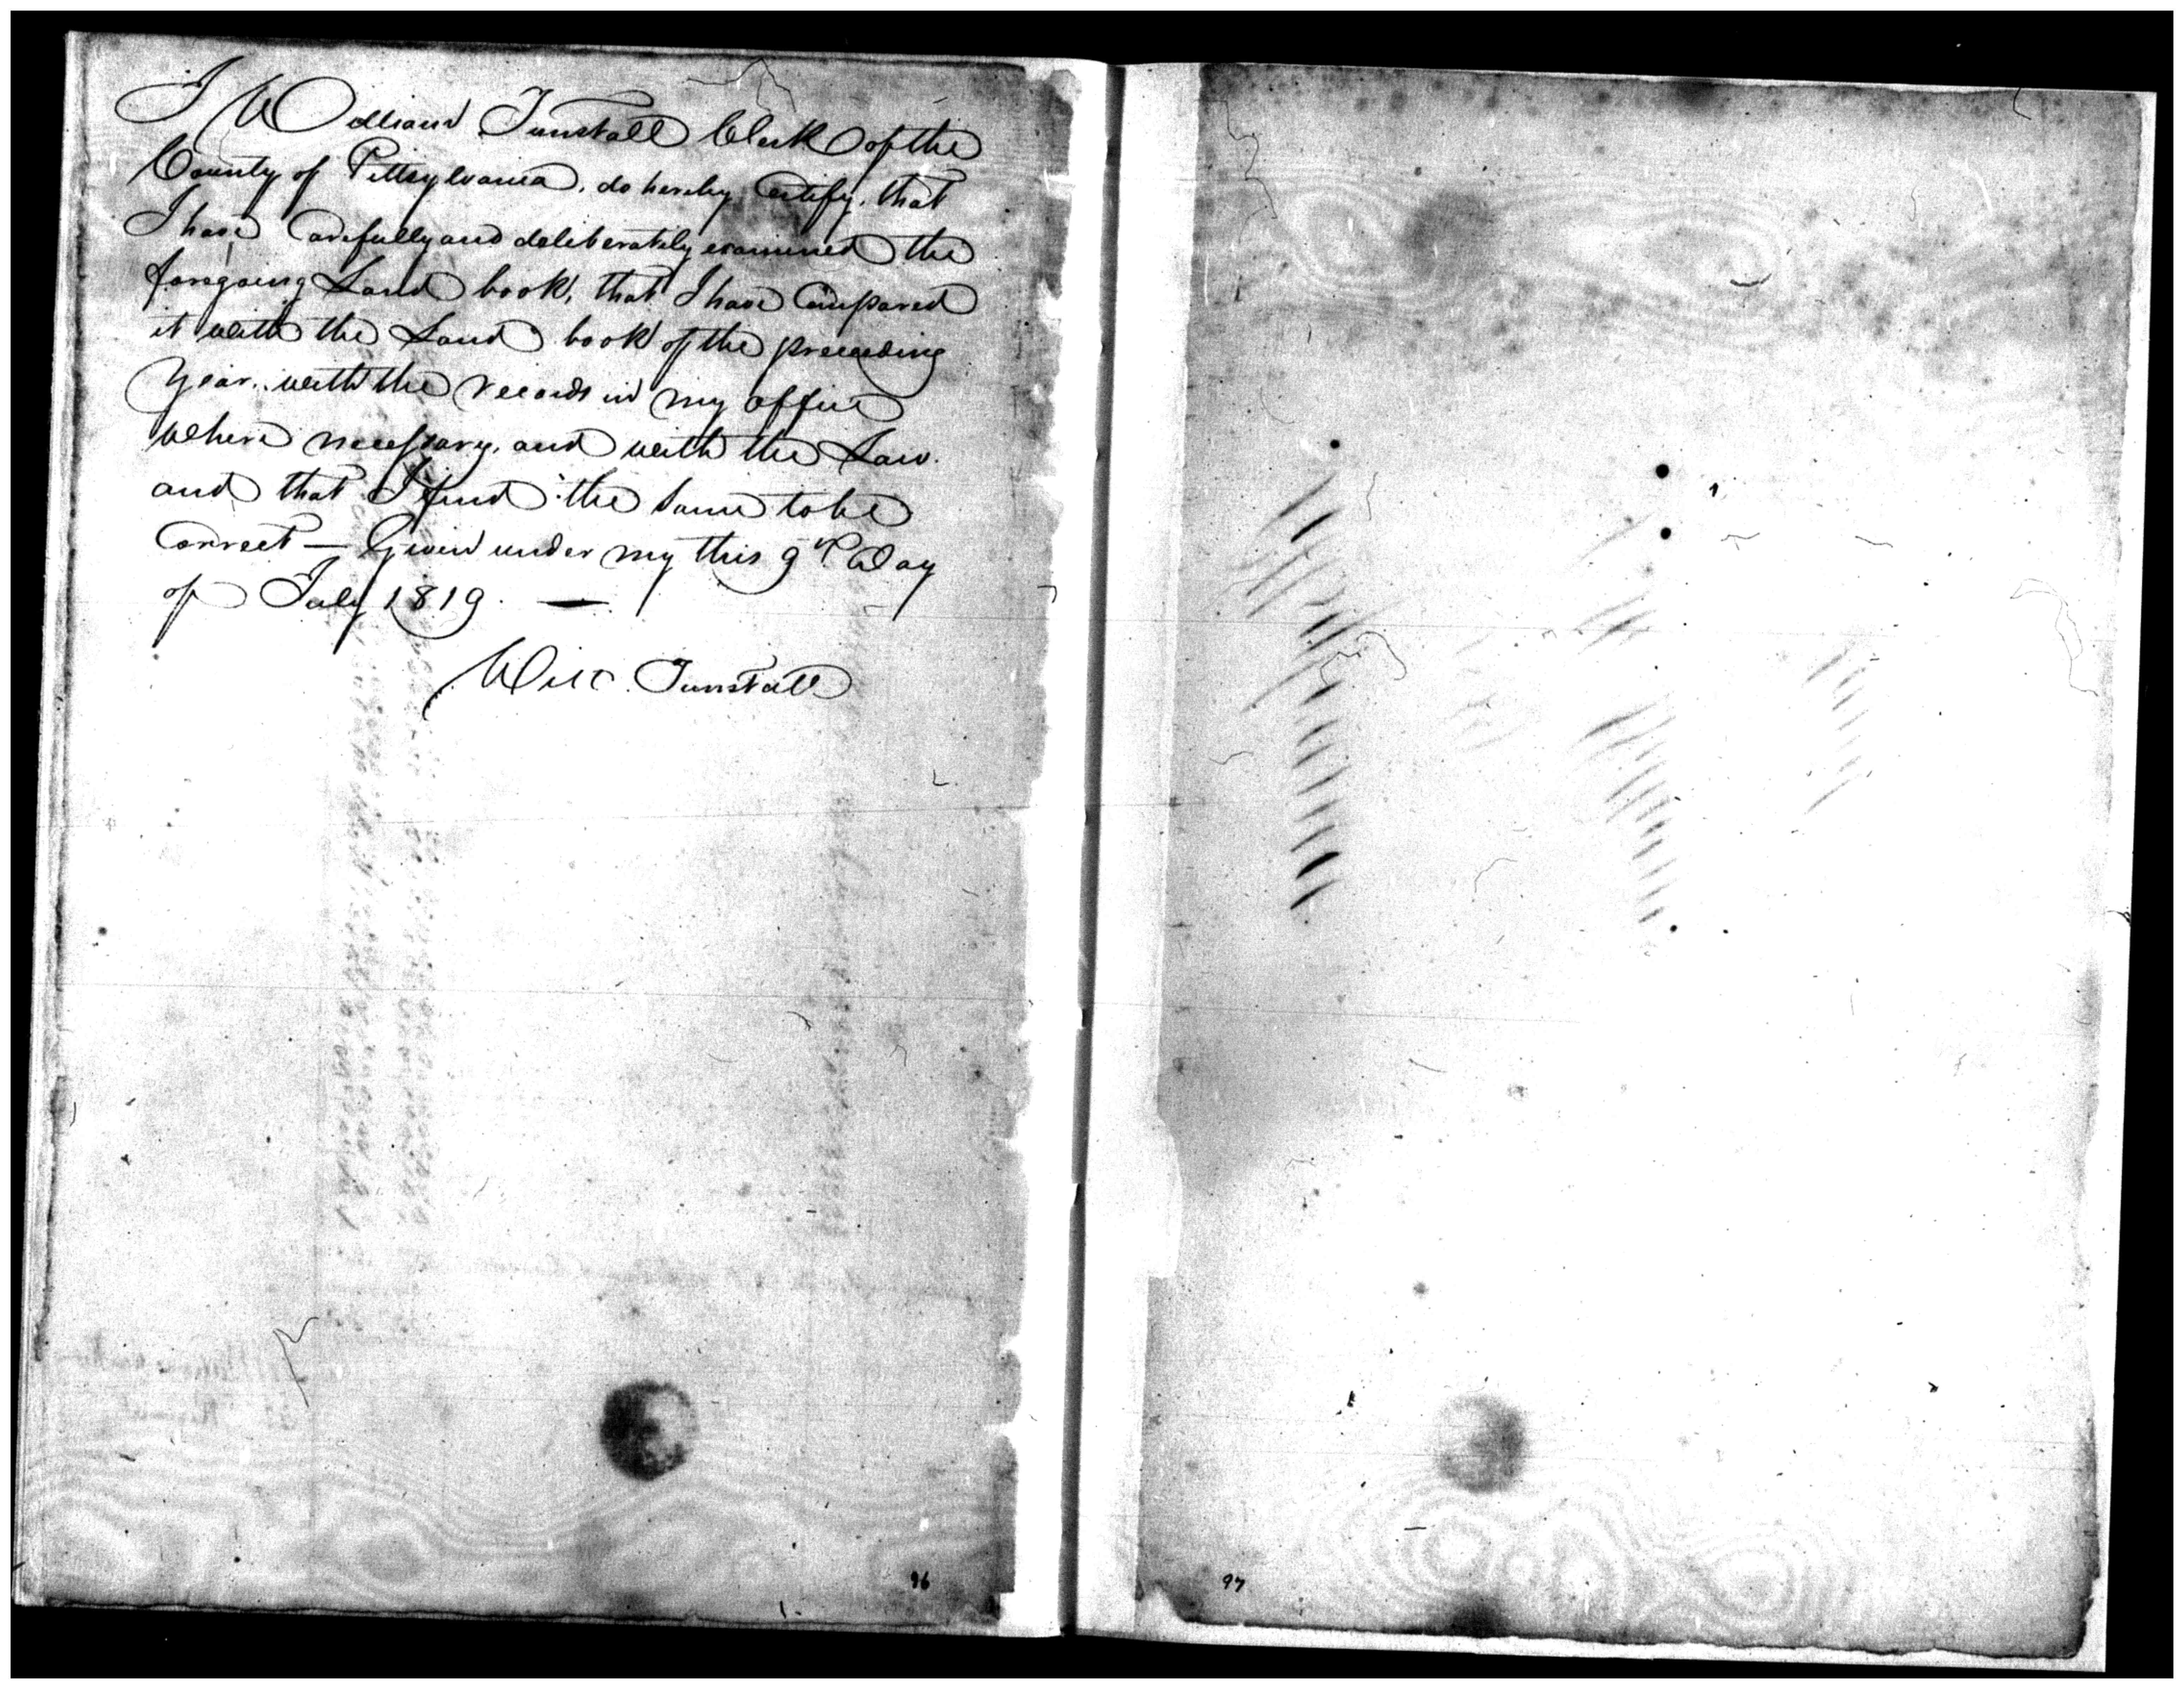 I William Tunstall Clerk of the
County of Pittsylvania, do hereby Certify, that
I have Carefully and deliberately examined the
foregoing Land book, that I have Compared
it with the Land book of the preceeding
Year, with the records in my office
where necessary, and with the Law.
and that I find the same to be
Correct — Given under my this 9th Day
of July 1819. —
Will Tunstall
96
97